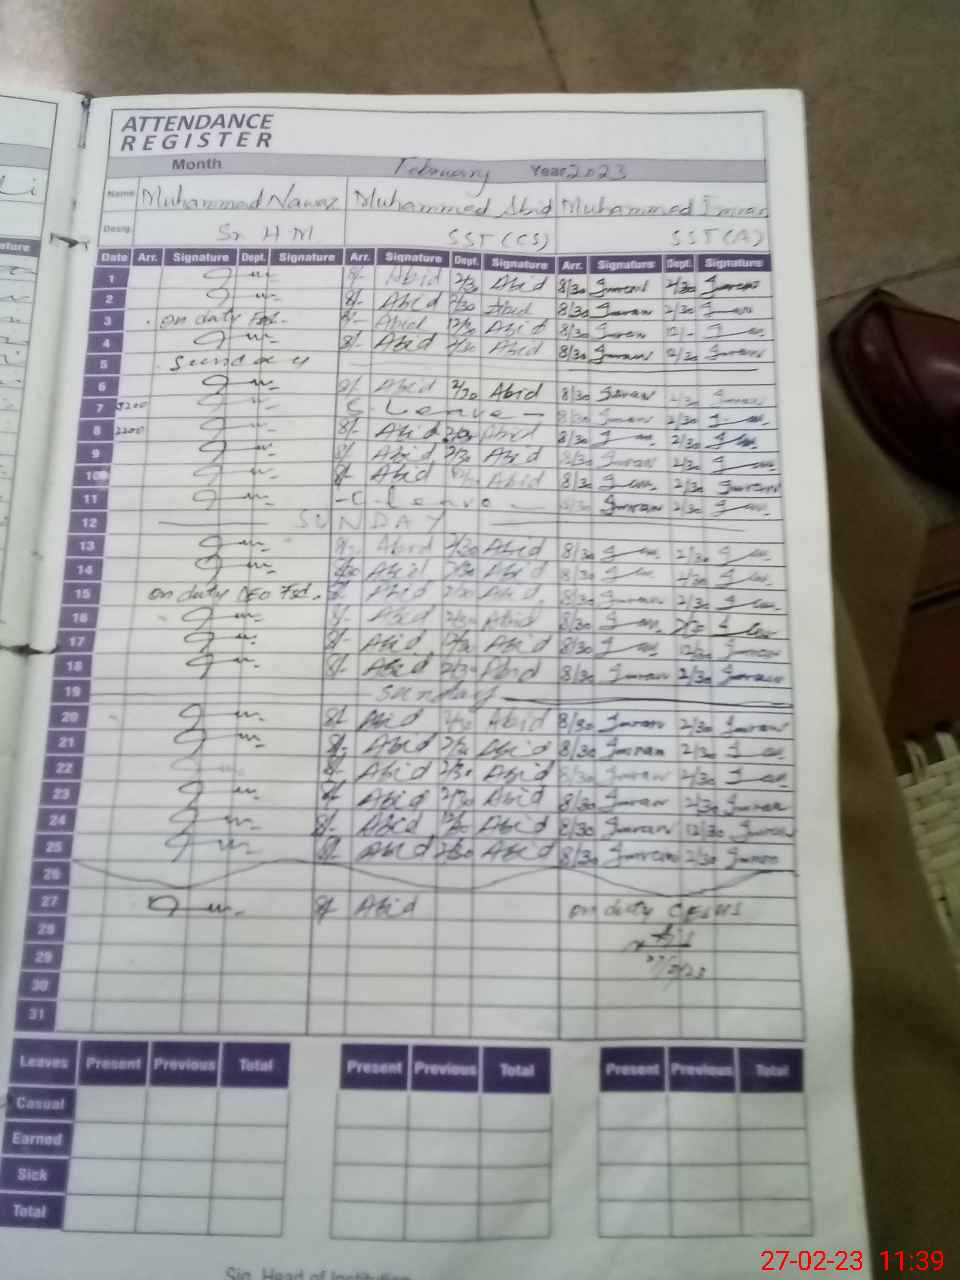 ATTENDANCE
REGISTER
Month February Year 2023
Name Muhammad Nawaz Muhammad Abid Muhammad Imran
Desig. Sr H M SST (CS) SST (A)
Date Arr. Signature Dept. Signature Arr. Signature Dept. Signature Arr. Signature Dept. Signature
1 8/- Abid 2/30 Abid 8/30 Imran 2/30 Imran
2 8/- Abid 2/30 Abid 8/30 Imran 2/30
3 on duty 8/- Abid 12/30 Abid 8/30 Imran 12/-
4 8/- Abid 2/30 Abid 8/30 Imran 2/30 Imran
5 Sunday
6 8/- Abid 2/30 Abid 8/30 Imran 2/30 Imran
7 Leave 8/30 Imran 2/30
8 2200 8/- Abid 2/30 Abid 8/30 2/30
9 8/- Abid 2/30 Abid 8/30 Imran 2/30
10 8/- Abid Abid 8/30 2/30 Imran
11 C. Leave 8/30 Imran 2/30
12 SUNDAY
13 8/- Abid 2/30 Abid 8/30 2/30
14 8/30 Abid 2/30 Abid 8/30 2/30
15 on duty CEO Fsd. 8/- Abid 2/30 Abid 8/30 Imran 2/30
16 8/- Abid 2/30 Abid 8/30
17 8/- Abid 12/30 Abid 8/30 12/30 Imran
18 8/- Abid 2/30 Abid 8/30 Imran 2/30 Imran
19 Sunday
20 8/- Abid 2/30 Abid 8/30 Imran 2/30 Imran
21 8/- Abid 2/30 Abid 8/30 Imran 2/30
22 8/- Abid 2/30 Abid 8/30 Imran 2/30
23 8/- Abid 2/30 Abid 8/30 Imran 2/30 Imran
24 8/- Abid 12/30 Abid 8/30 Imran 12/30 Imran
25 8/- Abid 2/30 Abid 8/30 Imran 2/30 Imran
26
27 8/- Abid on duty
28
29
30
31
Leaves Present Previous Total Present Previous Total Present Previous Total
Casual
Earned
Sick
Total
Sig. Head of Institution
27-02-23 11:39